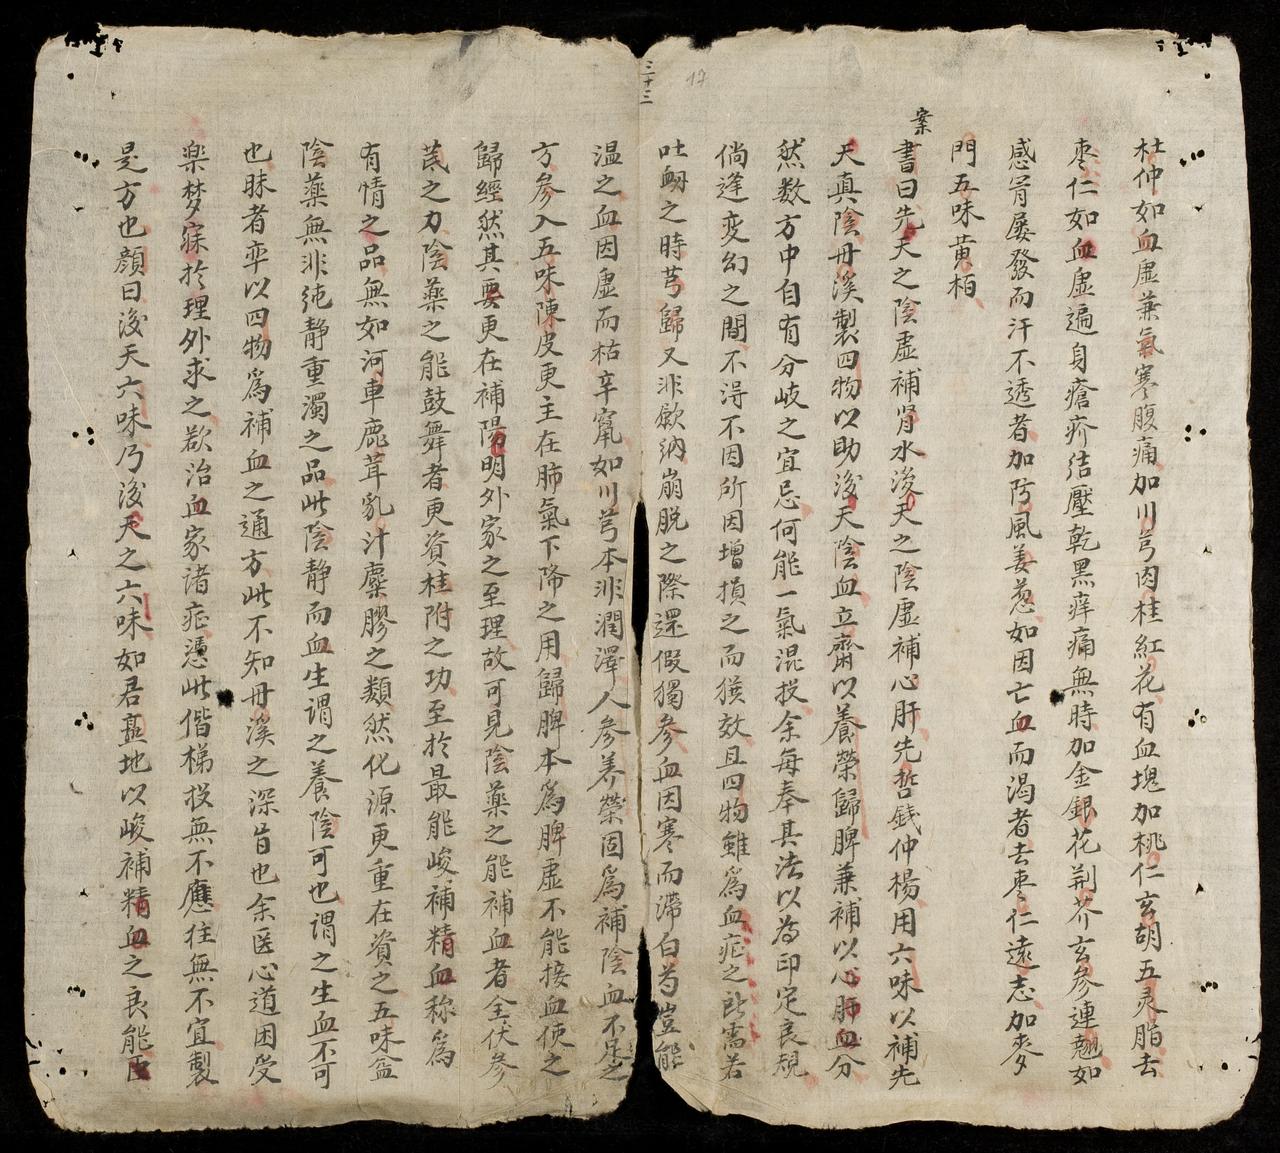 三十三
17
杜仲如血虚兼氣寒腹痛加川芎肉桂紅花有血塊加桃仁玄胡五灵脂去
枣仁如血虚遍身瘡疥结壓乾黑痒痛無時加金銀花荆芥玄参連翹如
感冐屡發而汗不透者加防風姜葱如因亡血而渴者去枣仁遠志加麥
門五味黄柏
案
書曰先天之陰虚補肾水後天之陰虚補心肝先哲錢仲楊用六味以補先
天真陰丹溪製四物以助後天陰血立齋以養榮歸脾兼補以心肺血分
然数方中自有分岐之宜忌何能一氣混投余每奉其法以為印定良規
倘逢变幻之間不淂不因所因增損之而獲效且四物雖爲血症之所需若
吐衂之時芎歸又非歛納崩脱之際還假獨参血因寒而滞白芍豈能
温之血因虚而枯辛竄如川芎本非潤澤人参养榮固爲補陰血不足之
方参入五味陳皮更主在肺氣下降之用歸脾本爲脾虚不能接血使之
歸經然其要更在補陽明外家之至理故可見陰薬之能補血者全伏参
茋之力陰薬之能鼓舞者更資桂附之功至於最能峻補精血称爲
有情之品無如河車鹿茸乳汁麋膠之類然化源更重在資之五味盆
陰薬無非纯静重濁之品此陰静而血生謂之養陰可也謂之生血不可
也昧者率以四物爲補血之通方此不知丹溪之深旨也余医心道困受
楽梦寐於理外求之欲治血家诸症憑此偕梯投無不應往無不宜製
是方也顔曰後天六味乃後天之六味如君藍地以峻補精血之良能臣